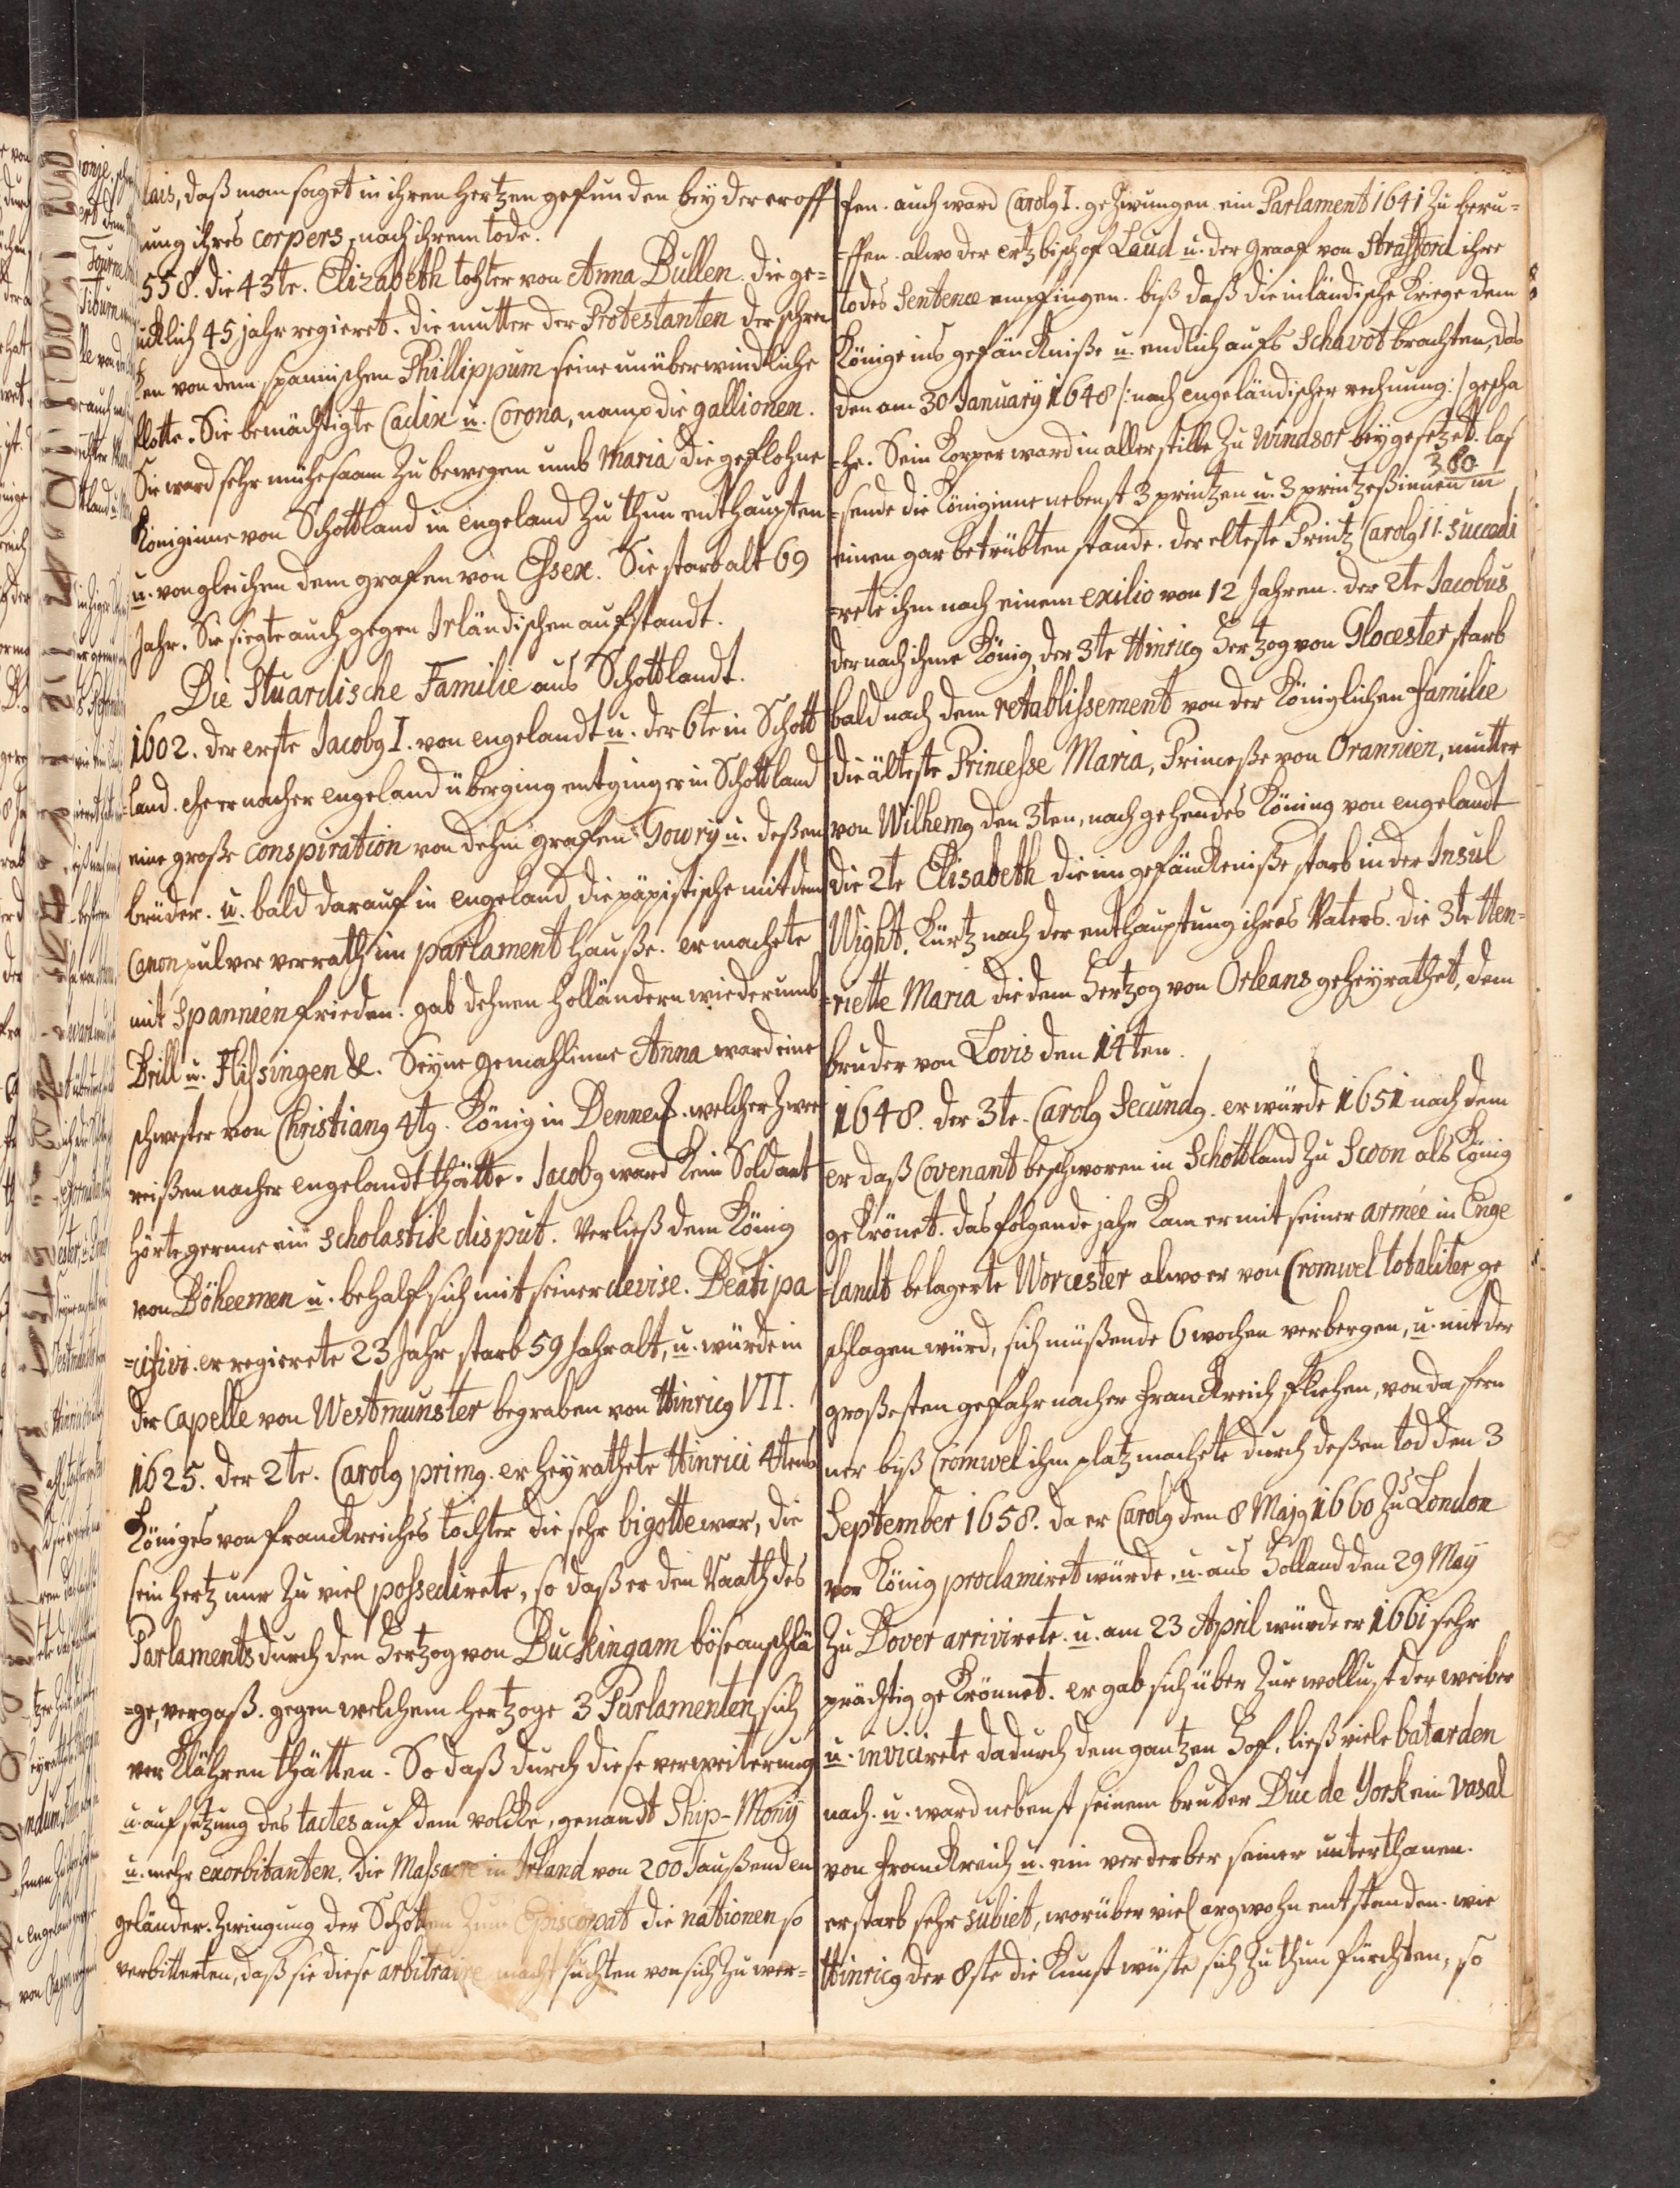 lais, daß man saget in ihren Hertzen gefunden bey der eroff
nung ihres corpers, nach ihrem tode.
1558. die 43te. Elizabeth tohter von Anna Bullen. die ge=
ücklich 45 jahr regieret. die mutter der Protestanten der schre
ken von dem spannischen Phillippum seine unüberwindliche
flotte. Sie bemächtigte Cadix u. Corona, namp die gallionen.
Sie ward sehr mühesaam zu bewegen umb Maria die geflohne
Königinne von Schottland in engeland zu thun enthaupten
u. von gleichem dem grafen von Essex. Sie starb alt 69
Jahr. Sie siegte auch gegen Irländischen aufstandt.
Die Stuardische Familie aus Schottlandt.
1602. der erste Jacobg I. von engelandt u. der 6te in Schott
=land. ehe er nacher engeland überging entging er in Schottland
eine große conspiration von dehm grafen Gowrij u. deßen
brüder. u. bald darauf in engeland die päpistische mit dem
Canonpulver verrath im parlament hauße. er machete
mit Spannien frieden. gab dehnen holländern wiederumb
Brill u. Flissingen &. Seyne gemahlinne Anna ward eine
schwester von Christiang 4tg. König in Dennem. welcher zwei
reißen nacher engelandt thätte. Jacobg ward kein Soldaat
hörte gerne ein scholastik disput. Verließ dem König
von Böheemen u. behalf sich mit seiner devise. Beati pa
=cifivi. er regierete 23 Jahr starb 59 Jahr alt, u. würde in
der Capelle von Westmunster begraben von Hinricg VII.
1625. der 2te. Carolg primg. er heyrathete Hinrici 4tens
Königes von franckreiches tochter die sehr bigotte war, die
sein hertz nur zu viel possedirete, so daß er den Raath des
Parlaments durch den Hertzog von Buckingam böse anschlä
=ge, vergaß. gegen welchem hertzoge 3 Parlamenten sich
verklähren thätten. So daß durch diese verweiterung
u. aufsetzung des tactes auf dem volcke, genandt Ship-Monij
u. mehr exorbitanten. die Massacre in Irland von 200 Taußend en
geländer. zwingung der Schotten zum Episcopat die nationen so
verbitterten, daß sie diese arbitraire macht suchten von sich zu wer=
fen. auch ward Carolg I. gezwungen ein Parlament 1641 zu beru=
=ffen. alwo der ertzbischof Laud u. der Graaf von Strafford ihre
todes Sentence empfingen. biß daß die inländische kriege dem
Könige ins gefänckniße u. endlich aufs Schavot brachten, das
den am 30 Januarÿ 1648 /: nach engeländischer rechnung :/ gescha
=he. Sein Korper ward in aller stille zu Windsor beÿgesetzet. las
=sende die Königinne nebenst 3 printzen u. 3 printzeßinnen in
360
einen gar betrübten stande. der elteste Printz Carolg II. succedi
=rete ihm nach einem exilio von 12 Jahren. der 2te Jacobus
der nach ihme König, der 3te Hinricg Hertzog von Glocester starb
bald nach dem retablissement von der Königlichen familie
die älteste Princesse Maria, Princeße von Orannien, mutter
von Wilhemg den 3ten, nachgehendes Köning von engelandt
die 2te Elisabeth die im gefänckniße starb in der Insul
Wight. kurtz nach der enthauptung ihres Vaters. die 3te Hen=
=riette Maria die dem Hertzog von Orleans geheyrathet, dem
bruder von Lovis den 14ten.
1648. der 3te. Carolg Secundg. er würde 1651 nach dem
er daß Covenant beschworen in Schottland zu Scoon als König
gekrönet. das folgende jahr kam er mit seiner armée in Enge
=landt belagerte Worcester alwo er von Cromwel totaliter ge
schlagen würd, sich müßende 6 wochen verbergen, u. mit der
großesten gefahr nacher franckreich fliehen, von da fern
ner biß Cromwel ihm platz machete durch deßen tod den 3
September 1658. da er Carolg den 8 Majg 1660 zu London
vor König proclamiret würde. u. aus Holland den 29 Maÿ
zu Dover arrivirete. u. am 23 April würde er 1661 sehr
prächtig gekrönnet. er gab sich über zur wollust der weiber
u. invicirete dadurch dem gantzen Hof, ließ viele batarden
nach. u. ward nebenst seinem bruder Duc de York ein vasal
von franckreich u. ein verderber seiner unterthanen.
er starb sehr subiet, worüber viel argwohn entstanden. wie
Hinricg der 8ste die kunst wüste sich zu thun fürchten, so